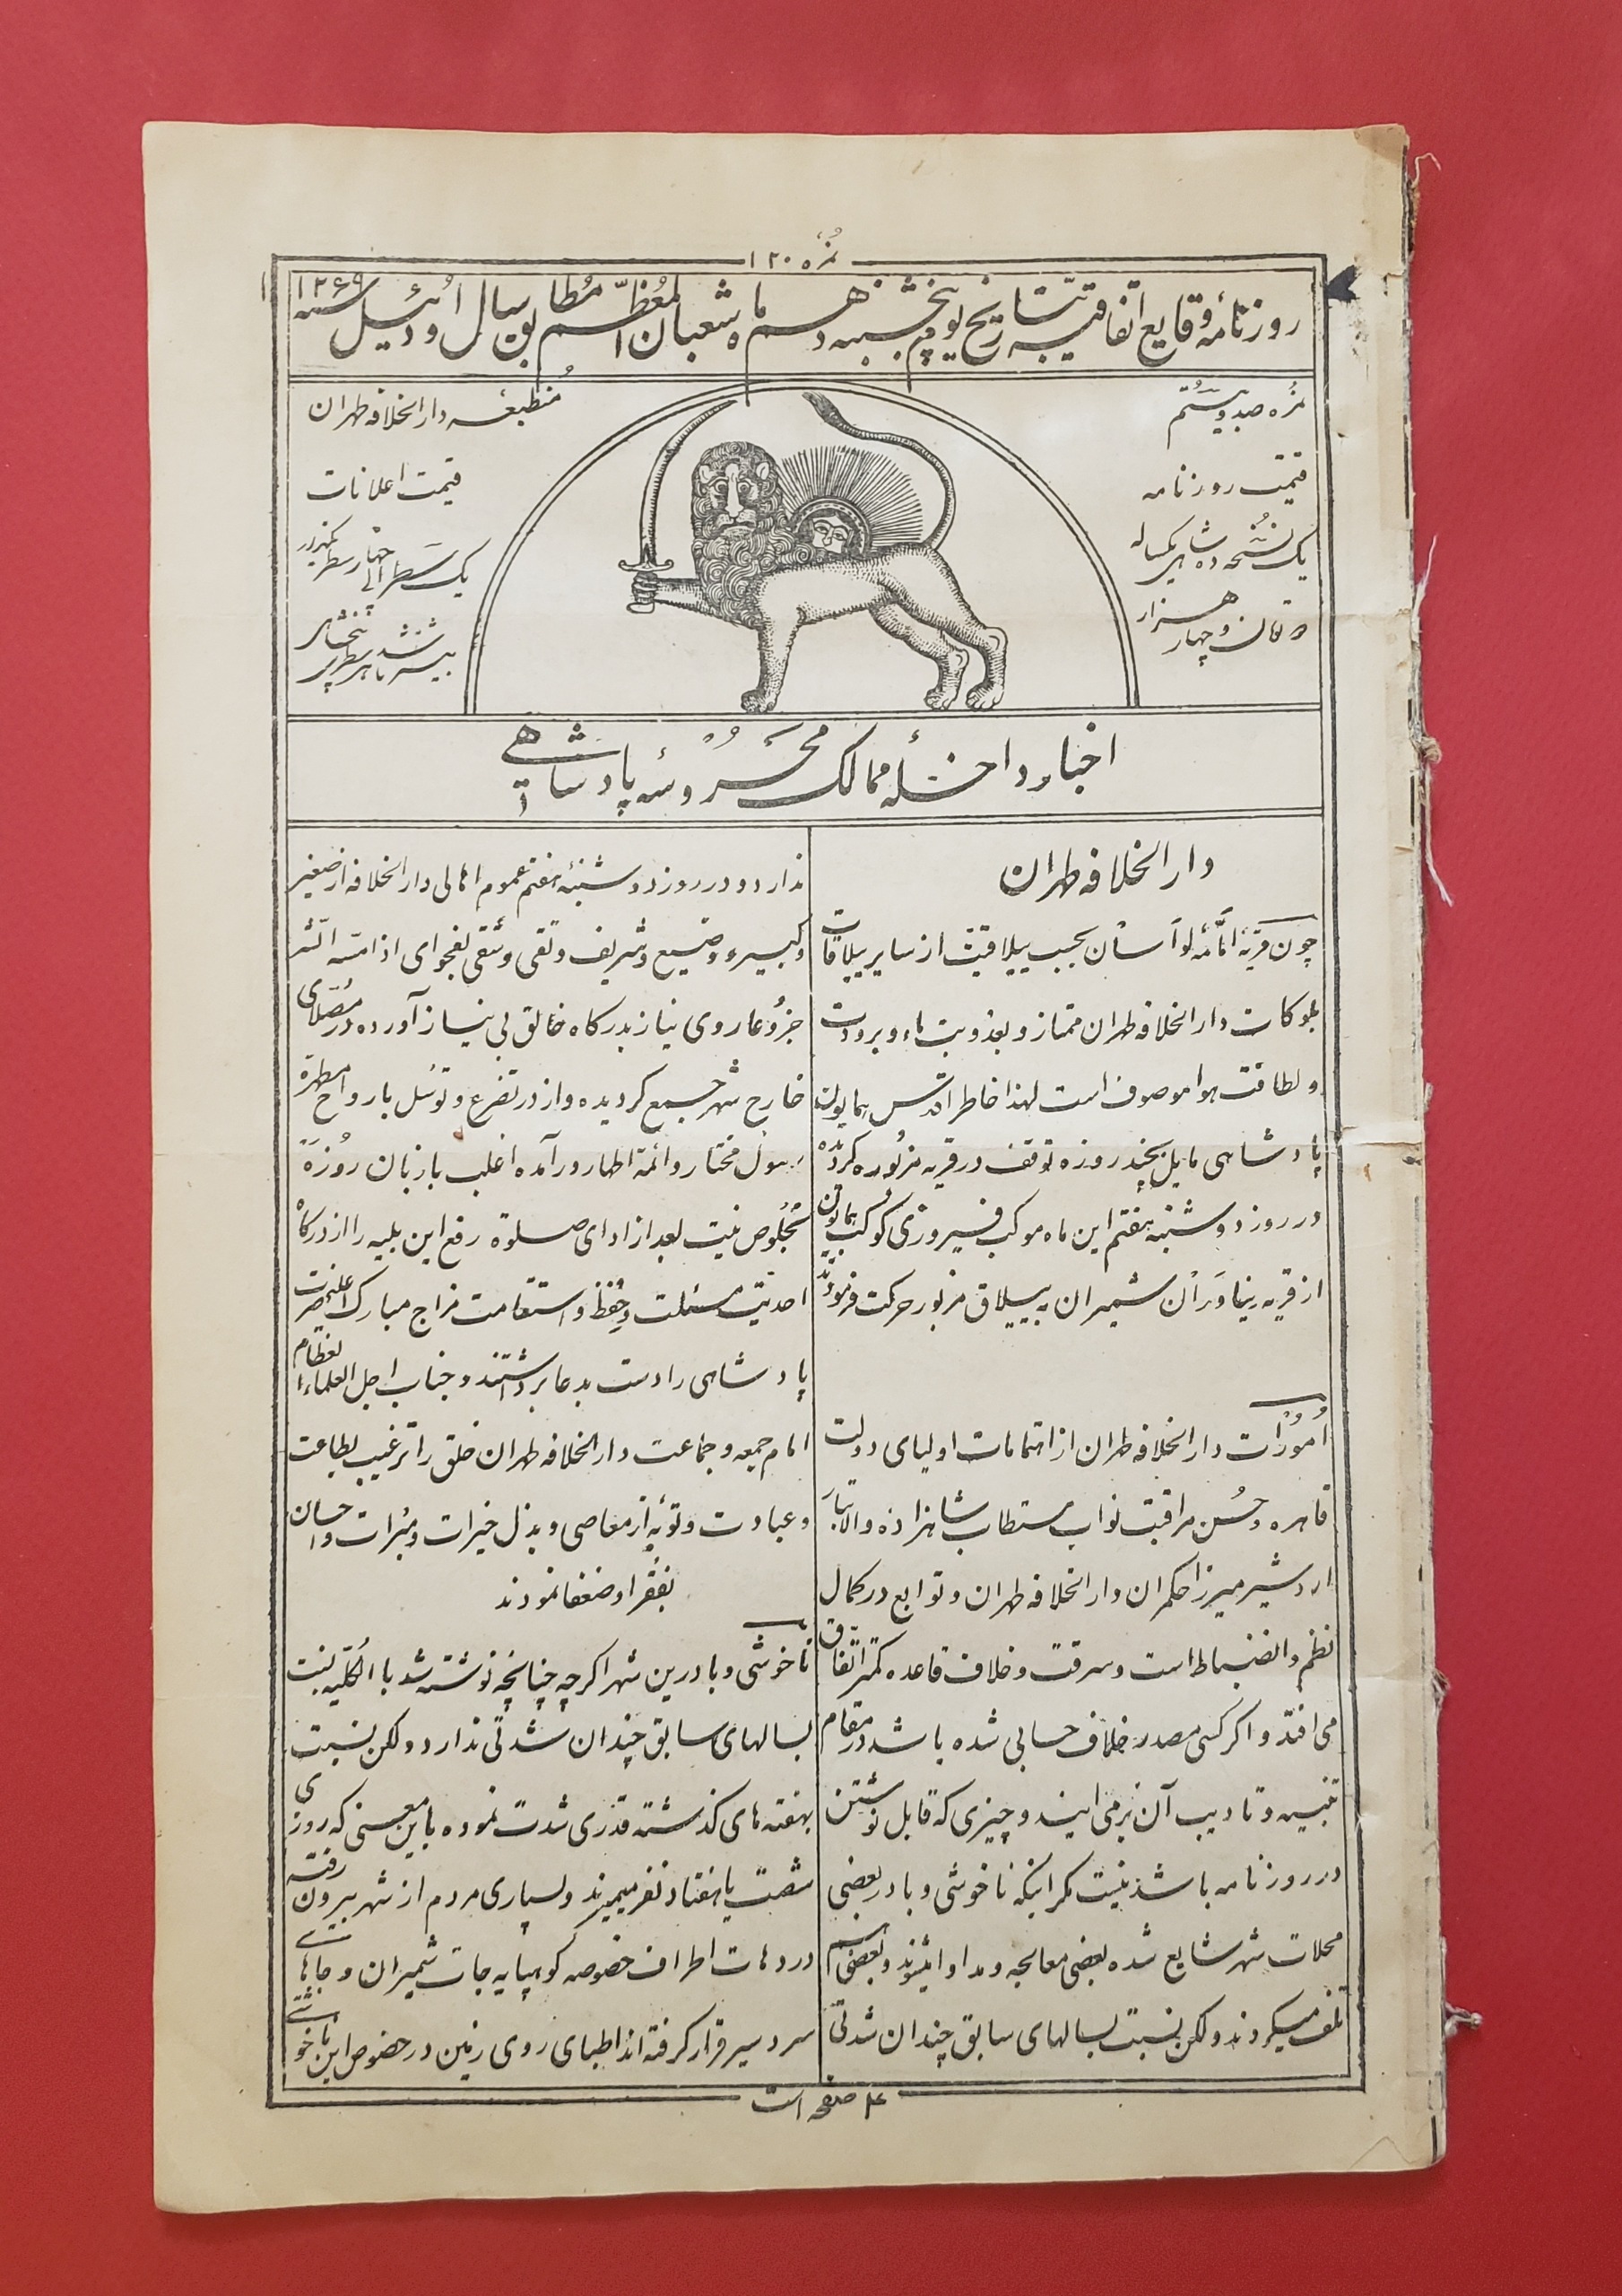 نمره ۱۲۰
روزنامه وقایع اتفاقیه بتاریخ یوم پنجشنبه دهم ماه شعبان المعظم مطابق سال اودئیل سنه ۱۲۶۹
نمره صد و بیستم
قیمت روزنامه
یک نسخه ده شاهی یکساله
دو تومان و چهار هزار
منطبعه دار الخلافه طهران
قیمت اعلانات
یک سطر الی چهار سطر یکهزار
بیشتر باشد هر سطری پنجشاهی
اخبار داخله ممالک محروسه پادشاهی
دار الخلافه طهران
چون قریه امامه لواسان بحسب ییلاقیت از سایر ییلاقات
بلوکات دار الخلافه طهران ممتاز و بعذوبت ماء و برودت
و لطافت هوا موصوف است لهذا خاطر اقدس همایون
پادشاهی مایل بچند روزه توقف در قریه مزبوره کردیده
در روز دوشنبه هفتم این ماه موکب فیروزی کوکب همایون
از قریه نیاوران شمیران به ییلاق مزبور حرکت فرمودند
امورات دار الخلافه طهران از اهتمامات اولیای دولت
قاهره و حسن مراقبت نواب مستطاب شاهزاده والاتبار
اردشیر میرزا حکمران دار الخلافه طهران و توابع در کمال
نظم و انضباط است و سرقت و خلاف قاعده کمتر اتفاق
می افتد و اکر کسی مصدر خلاف حسابی شده باشد در مقام
تنبیه و تادیب آن برمی ایند و چیزی که قابل نوشتن
در روزنامه باشد نیست مکر اینکه ناخوشی وبا در بعضی
محلات شهر شایع شده بعضی معالجه و مداوا میشوند و بعضی هم
تلف میکردند ولکن نسبت بسالهای سابق چندان شدتی
ندارد و در روز دوشنبه هفتم عموم اهالی دار الخلافه از صغیر
و کبیر و وضیع و شریف و تقی و شقی بفحوای اذا مسه الشر
جزوعا روی نیاز بدرکاه خالق بی نیاز آورده در مصلای
خارج شهر جمع کردیده و از در تضرع و توسل بارواح مطهره
رسول مختار و ائمه اطهار در آمده اغلب با زبان روزه
بخلوص نیت بعد از ادای صلوة رفع این بلیه را از درکاه
احدیت مسئلت و حفظ و استقامت مزاج مبارک اعلیحضرت
پادشاهی را دست بدعا برداشتند و جناب اجل العلماء العظام
امام جمعه و جماعت دار الخلافه طهران خلق را ترغیب بطاعت
و عبادت و توبه از معاصی و بذل خیرات و مبرات و احسان
بفقرا و ضعفا نمودند
ناخوشی وبا درین شهر اکرچه چنانچه نوشته شد با الکلیه نسبت
بسالهای سابق چندان شدتی ندارد ولکن نسبت
بهفته های کذشته قدری شدت نموده باین معنی که روزی
شصت یا هفتاد نفر میمیرند و بسیاری مردم از شهر بیرون رفته
در دهات اطراف خصوصه کوهپایه جات شمیران و جاهای
سردسیر قرار کرفته اند اطبای روی زمین در خصوص این ناخوشی
۴ صفحه است